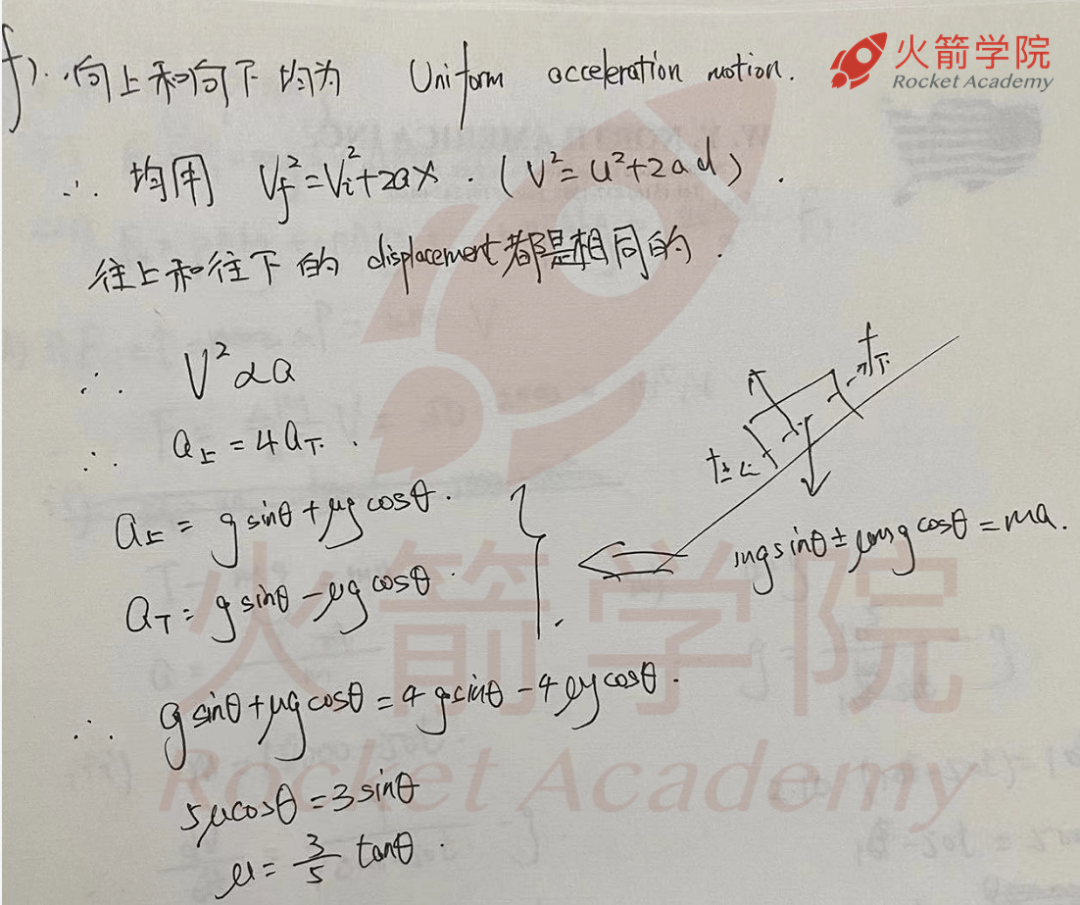 火箭学院
Rocket Academy
f). 向上和向下均为 Uniform acceleration motion.
∴ 均用 Vf²=Vi²+2ax . (V²=u²+2ad) .
往上和往下的 displacement都是相同的 .
∴ V²∝a
∴ a上 = 4a下 .
a上 = g sinθ+μg cosθ .
a下 = g sinθ-μg cosθ .
f下
f上
mg sinθ±μmg cosθ=ma.
∴ g sinθ+μg cosθ=4 g sinθ-4μg cosθ .
5μcosθ=3sinθ
μ= 3/5 tanθ .
火箭学院
Rocket Academy